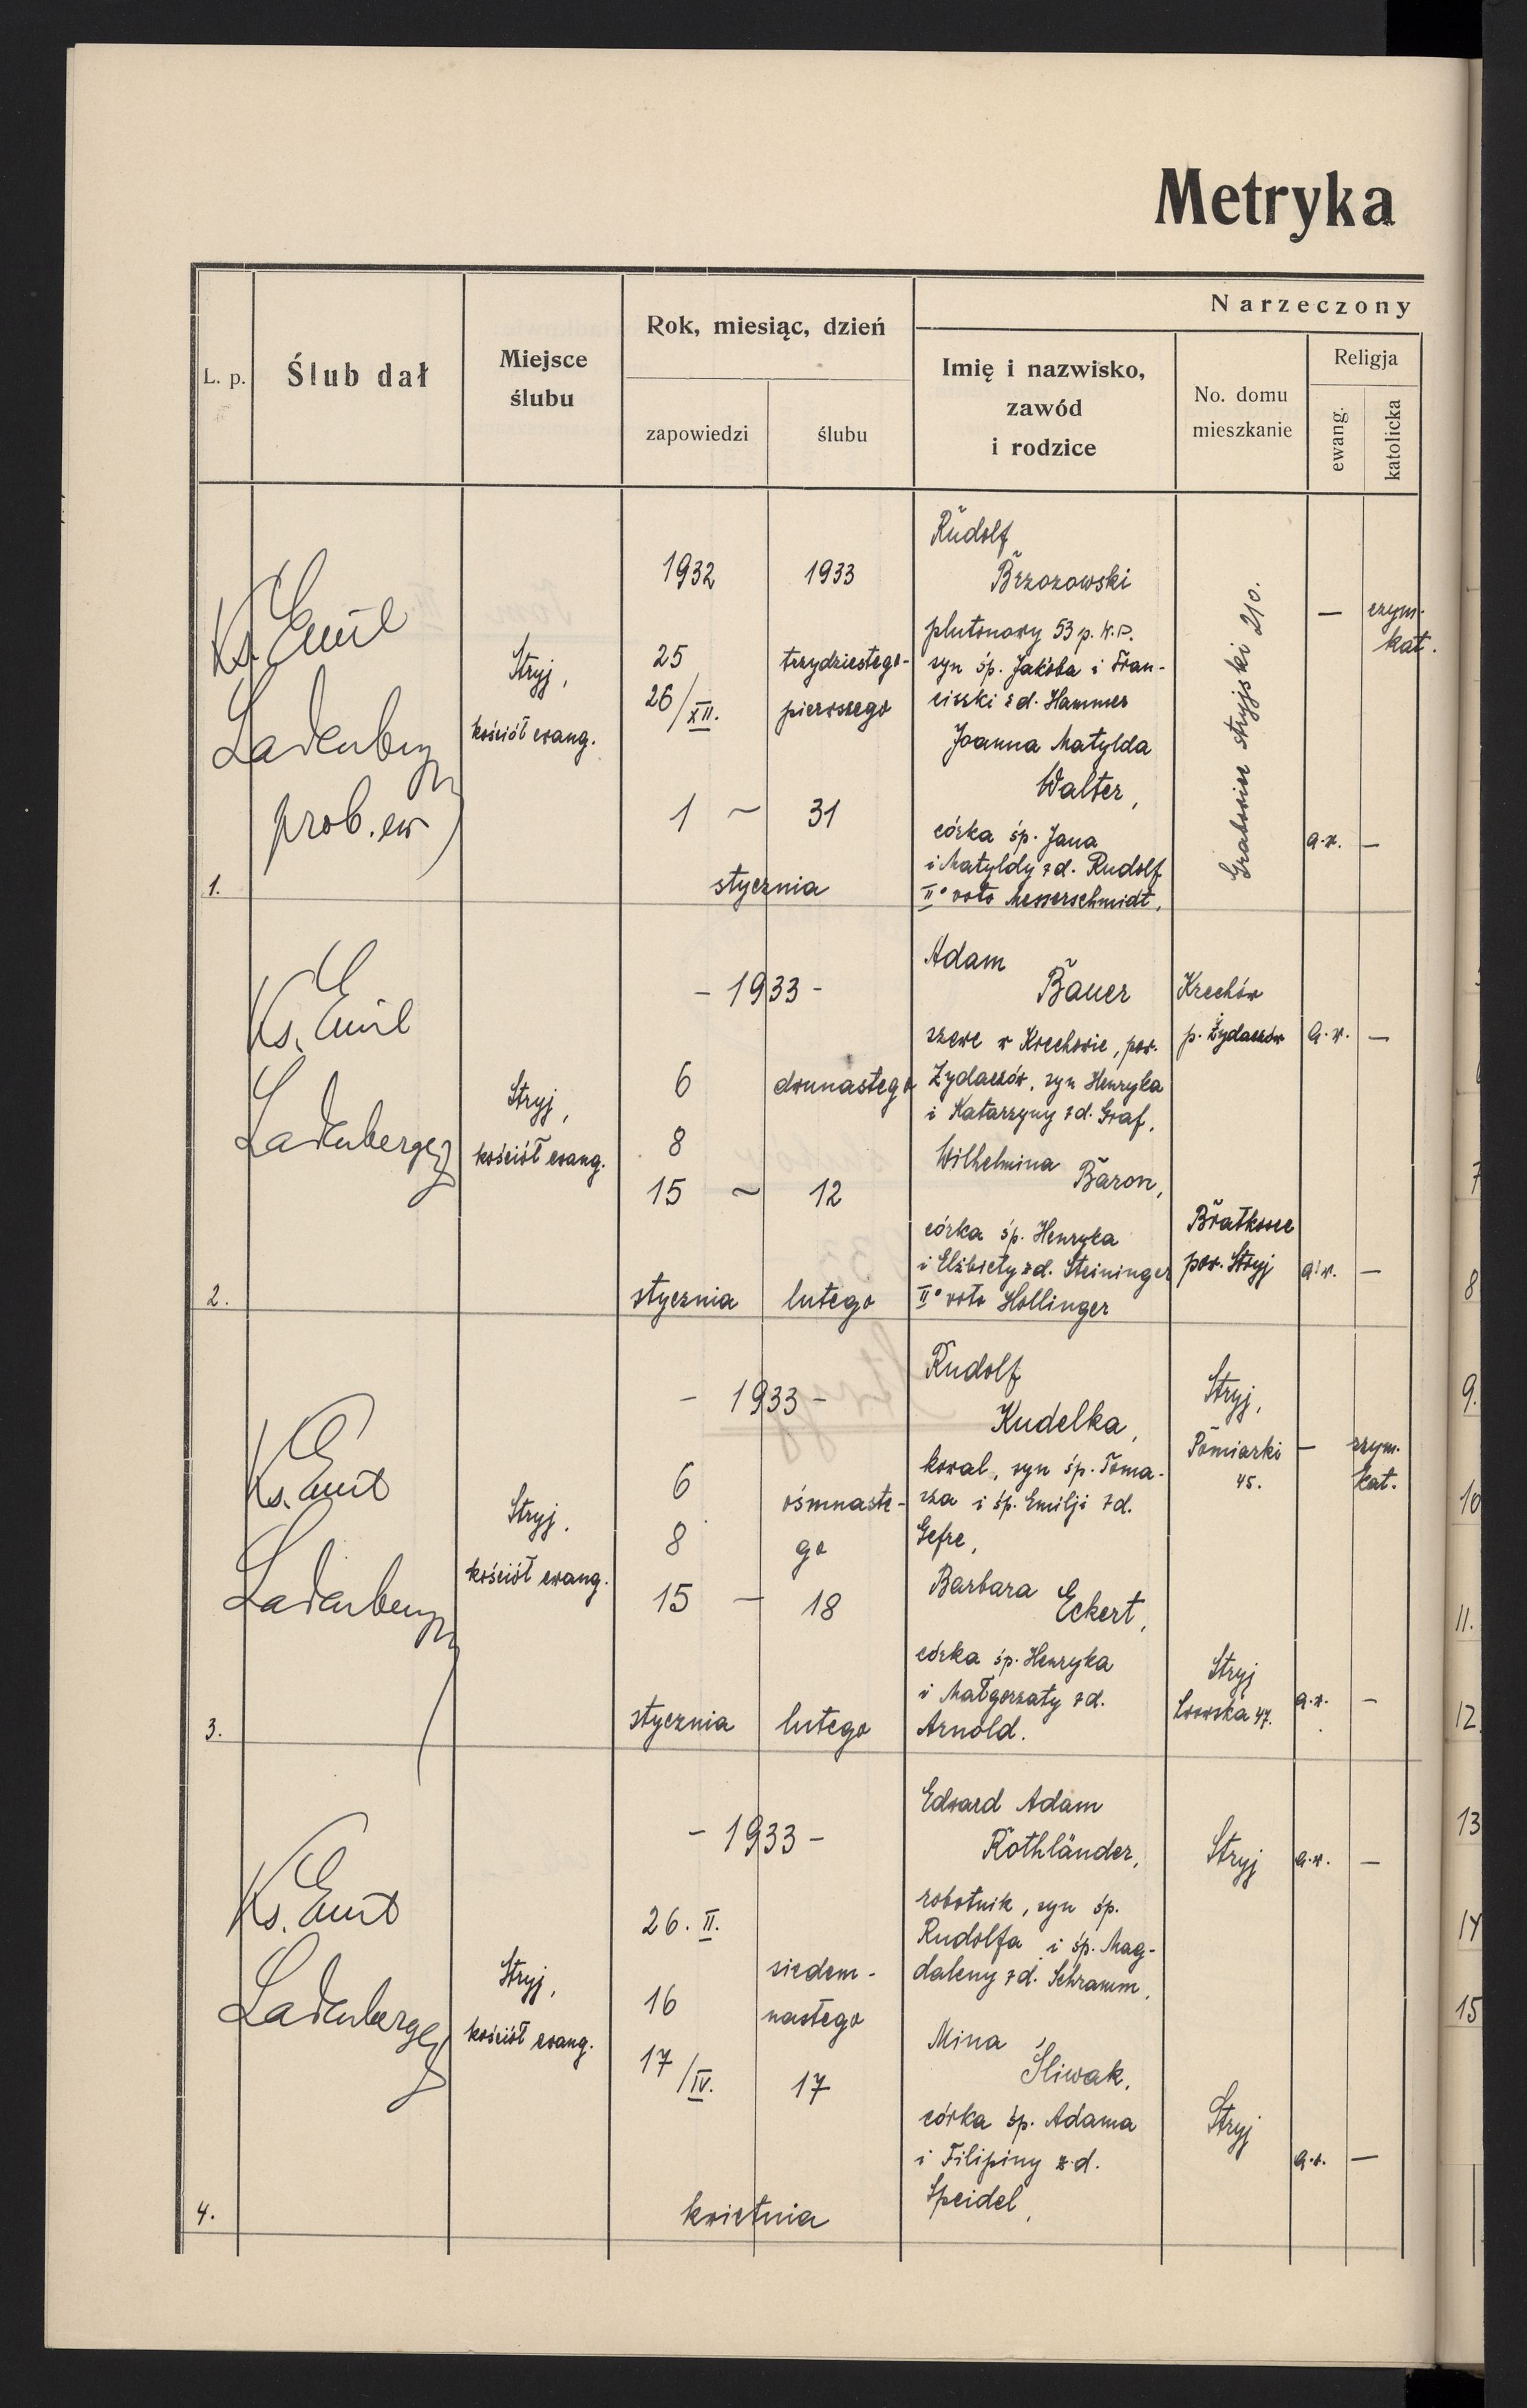 Metryka
L. p.
Ślub dał
Miejsce
ślubu
Rok, miesiąc, dzień
zapowiedzi
ślubu
Narzeczony
Imię i nazwisko,
zawód
i rodzice
No. domu
mieszkanie
Religja
ewang.
katolicka
1.
Ks. Emil
Ladenberger
prob. ew
Stryj,
kościół ewang.
1932
25
26/XII.
1 ~
1933
trzydziestego-
pierwszego
31
stycznia
Rudolf
Brzozowski
plutonowy 53 p. K.P.
syn śp. Jakóba i Fran-
ciszki zd. Hammer
Joanna Matylda
Walter,
córka śp. Jana
i Matyldy zd. Rudolf
II° voto Messerschmidt,
Grabowice stryjski 210.
—
rzym-
kat.
a.w.
—
2.
Ks. Emil
Ladenberger
Stryj,
kościół ewang.
- 1933 -
6
8
15 ~
stycznia
dwunastego
12
lutego
Adam
Bauer
szewc w Krechowie, pow.
Żydaczów, syn Henryka
i Katarzyny zd. Graf,
Wilhelmina
Baron,
córka śp. Henryka
i Elżbiety zd. Steininger
II° voto Hollinger
Krechów
p. Żydaczów
a.w.
—
Bratkowce
pow. Stryj
a.w.
—
3.
Ks. Emil
Ladenberger
Stryj,
kościół ewang.
- 1933 -
6
8
15 —
stycznia
ośmnaste-
go
18
lutego
Rudolf
Kudelka,
kowal, syn śp. Toma-
sza i śp. Emilji zd.
Gefre,
Barbara
Eckert,
córka śp. Henryka
i Małgorzaty zd.
Arnold.
Stryj,
Pomiarki
45.
—
rzym.
kat.
Stryj
Lwowska 47.
a.w.
—
4.
Ks. Emil
Ladenberger
Stryj,
kościół ewang.
- 1933 -
26. II.
16
17/IV.
siedem-
nastego
17
kwietnia
Edward Adam
Rothländer,
robotnik, syn śp.
Rudolfa i śp. Mag-
daleny zd. Schramm,
Mina
Śliwak,
córka śp. Adama
i Filipiny z d.
Speidel,
Stryj
a.w.
—
Stryj
a.w.
—
7
8
9.
10
11.
12
13
14
15